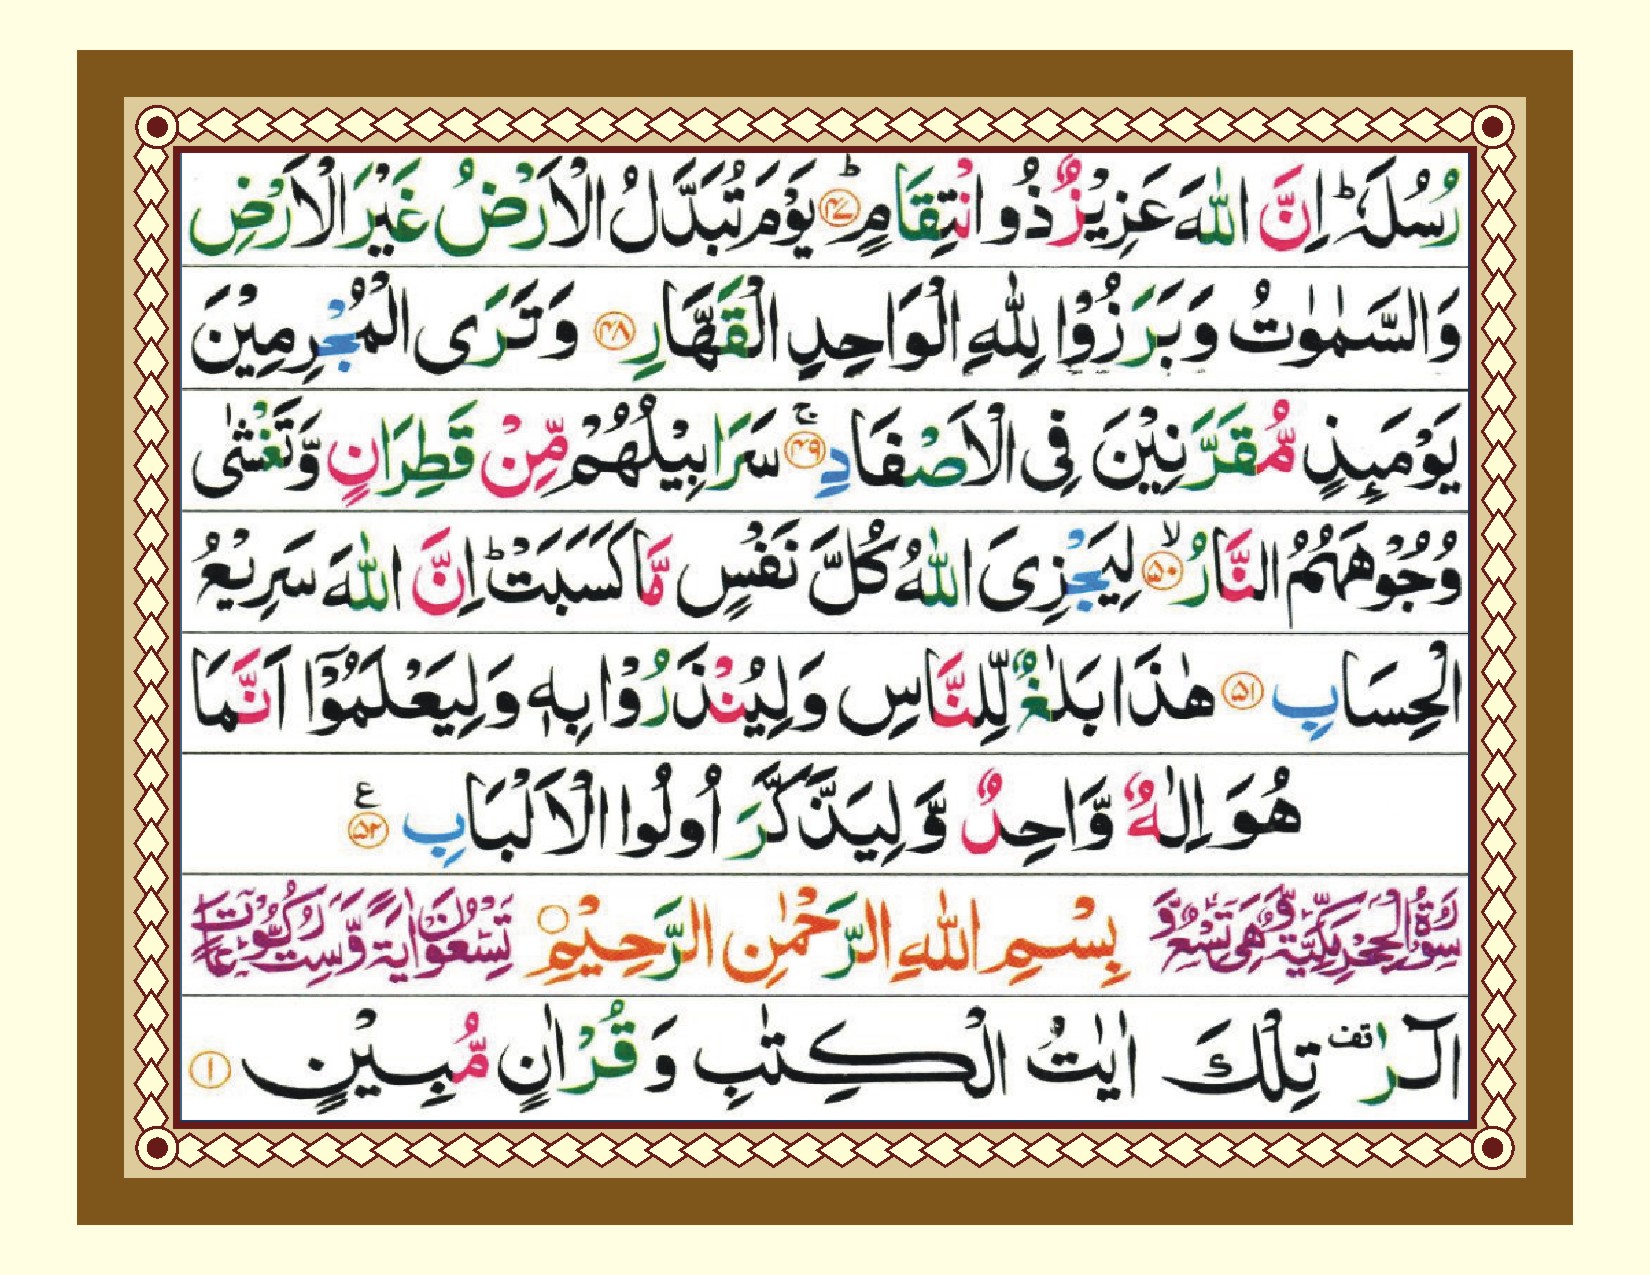 رُسُلَهٗ ؕ اِنَّ اللّٰهَ عَزِيْزٌ ذُو انْتِقَامٍ ؕ ﴿۴۷﴾ يَوْمَ تُبَدَّلُ الْاَرْضُ غَيْرَ الْاَرْضِ
وَالسَّمٰوٰتُ وَبَرَزُوْا لِلّٰهِ الْوَاحِدِ الْقَهَّارِ ﴿۴۸﴾ وَتَرَى الْمُجْرِمِيْنَ
يَوْمَئِذٍ مُّقَرَّنِيْنَ فِى الْاَصْفَادِ ۚ ﴿۴۹﴾ سَرَابِيْلُهُمْ مِّنْ قَطِرَانٍ وَّتَغْشٰى
وُجُوْهَهُمُ النَّارُ ۙ ﴿۵۰﴾ لِيَجْزِىَ اللّٰهُ كُلَّ نَفْسٍ مَّا كَسَبَتْ ؕ اِنَّ اللّٰهَ سَرِيْعُ
الْحِسَابِ ﴿۵۱﴾ هٰذَا بَلٰغٌ لِّلنَّاسِ وَلِيُنْذَرُوْا بِهٖ وَلِيَعْلَمُوْۤا اَنَّمَا
هُوَ اِلٰهٌ وَّاحِدٌ وَّلِيَذَّكَّرَ اُولُوا الْاَلْبَابِ ﴿۵۲﴾ ع
سُوْرَةُ الْحِجْرِ مَكِّيَّةٌ وَّهِىَ تِسْعٌ وَّ بِسْمِ اللّٰهِ الرَّحْمٰنِ الرَّحِيْمِ تِسْعُوْنَ اٰيَةً وَّسِتُّ رُكُوْعَاتٍ
الٓرٰ ۟ تف تِلْكَ اٰيٰتُ الْكِتٰبِ وَقُرْاٰنٍ مُّبِيْنٍ ﴿۱﴾